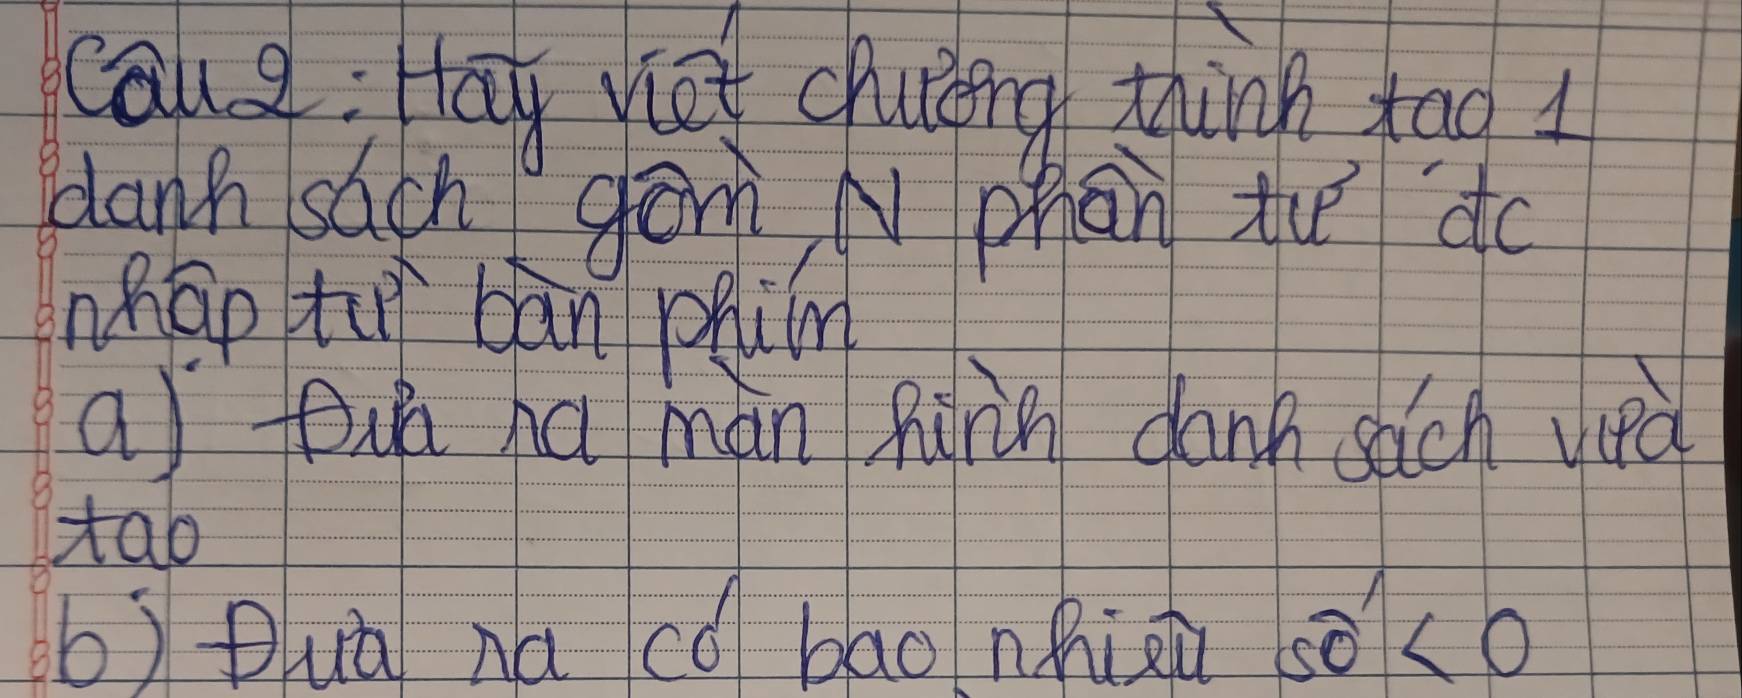 Câu 2: Hãy viết chương trình tạo 1
danh sách gồm N phần tử đc
nhập từ bàn phím
a) Đưa ra màn hình danh sách vừa
tạo
b) Đưa ra có bao nhiêu số < 0